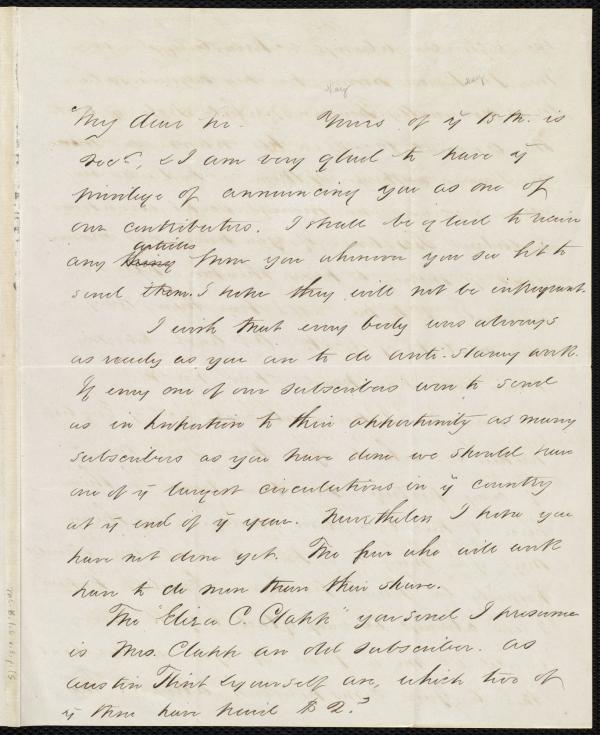 My dear Mr. May Yours of ye 15th. is
recd, & I am very glad to have ye
privilege of announcing you as one of
our contributors. I shall be glad to receive
articles
any thing from you whenever you see fit to
send them. I hope they will not be infrequent.
I wish that every body was always
as ready as you are to do anti-slavery work.
If every one of our subscribers were to send
us in proportion to their opportunity as many
subscribers as you have done we should have
one of ye largest circulations in ye country
at ye end of ye year. Nevertheless I hope you
have not done yet. The few who will work
have to do more than their share.
The "Eliza C. Clapp" you send I presume
is Mrs. Clapp an old subscriber. as
Austin Flint & yourself are, which two of
ye three have paid $2.?